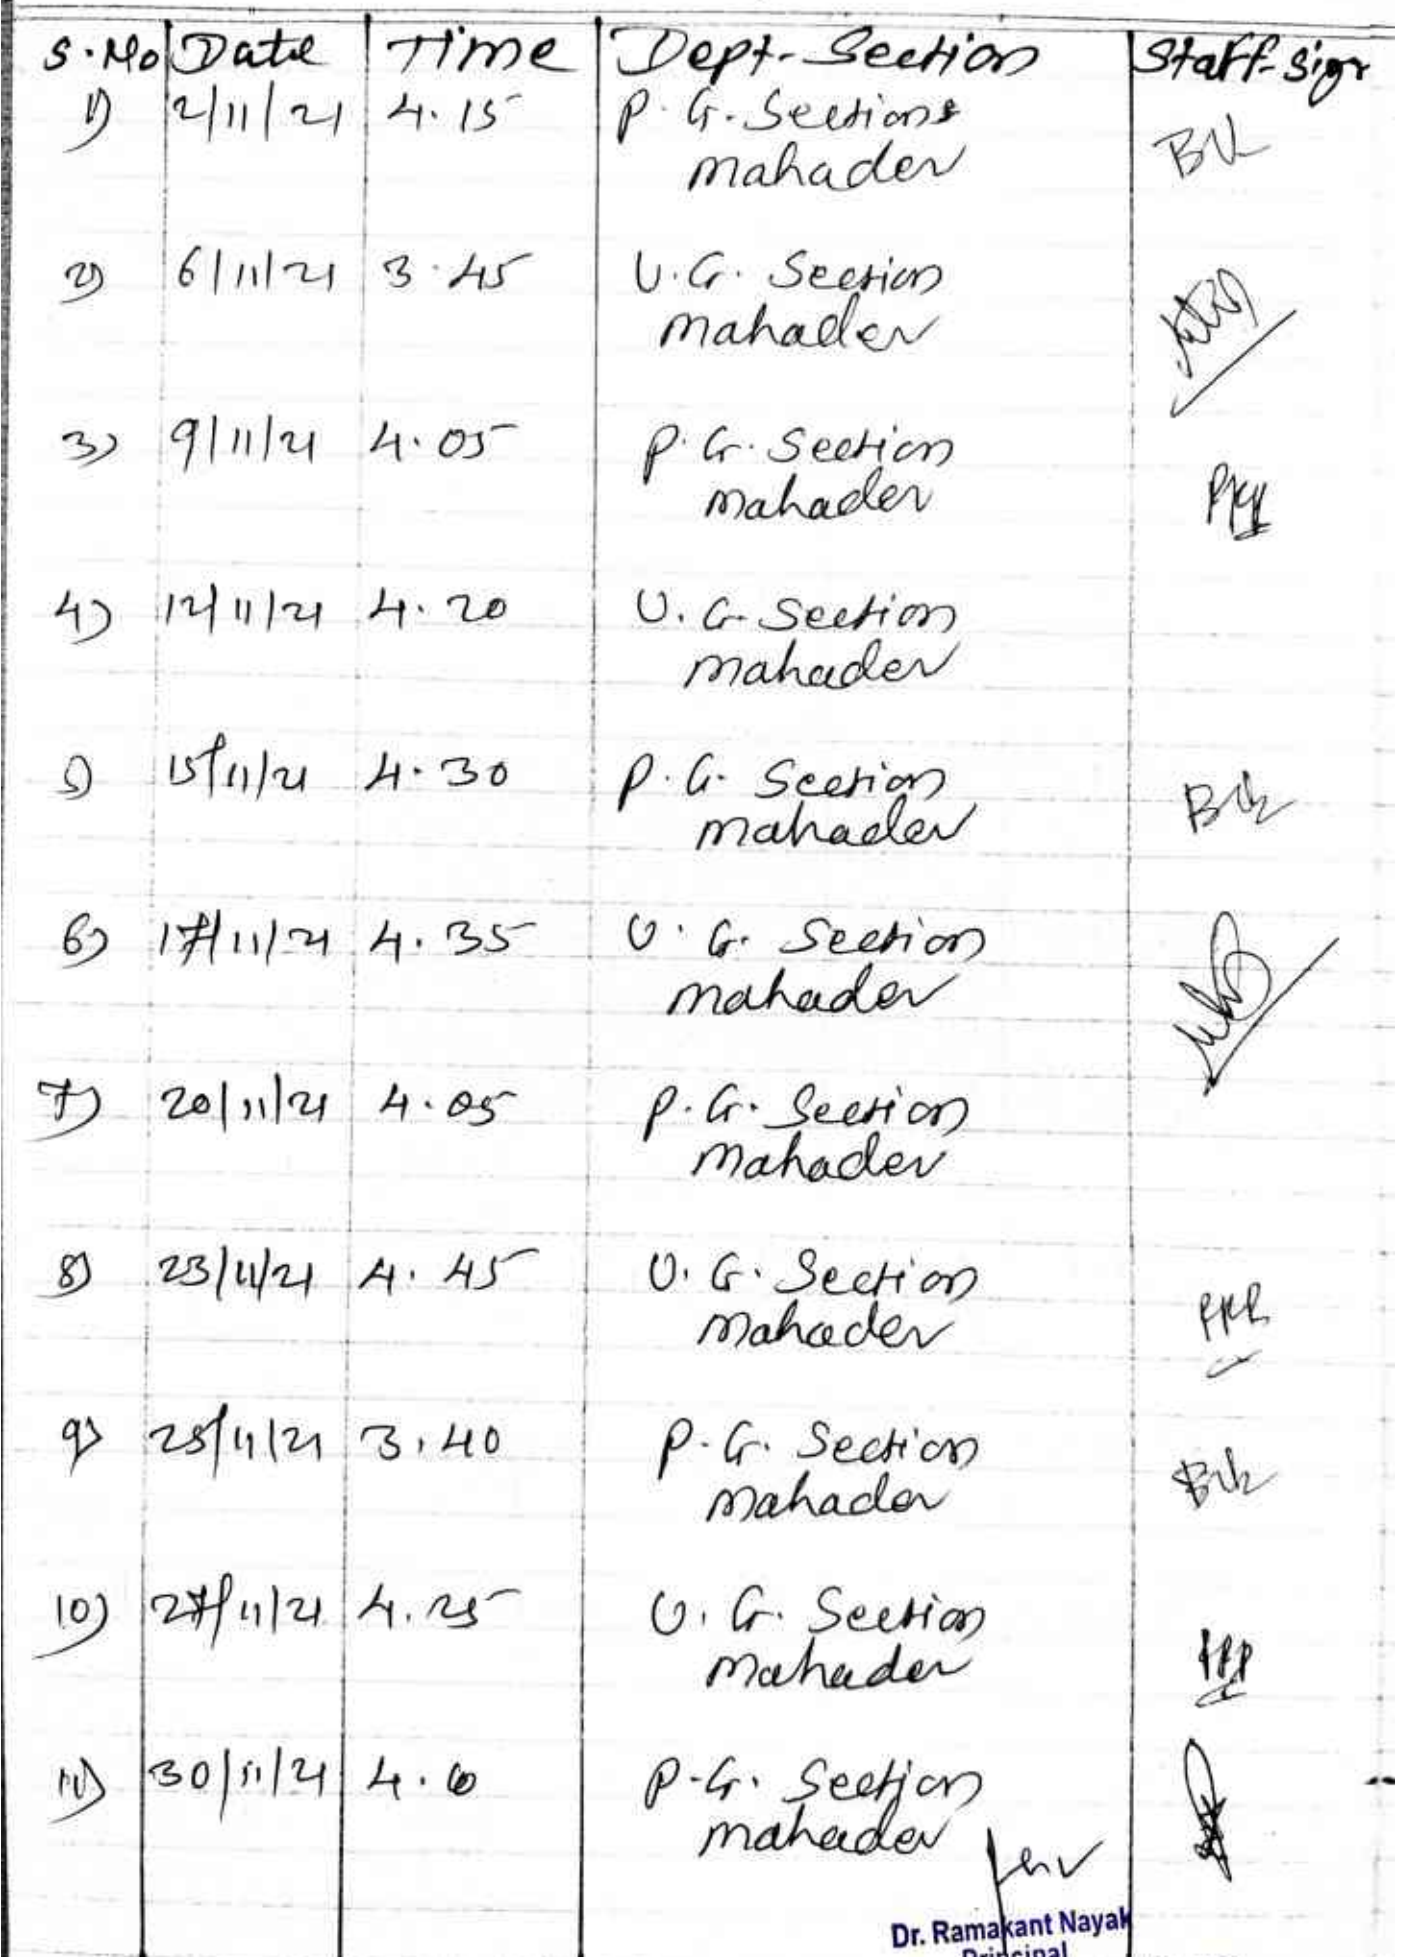 S.No Date Time Dept-Section Staff-sign
1) 2/11/21 4.15 P.G. Section
mahadev
2) 6/11/21 3.45 U.G. Section
mahadev
3) 9/11/21 4.05 P.G. Section
mahadev
4) 12/11/21 4.20 U.G. Section
mahadev
5) 15/11/21 4.30 P.G. Section
mahadev
6) 17/11/21 4.35 U.G. Section
mahadev
7) 20/11/21 4.05 P.G. Section
mahadev
8) 23/11/21 4.45 U.G. Section
mahadev
9) 25/11/21 3.40 P.G. Section
mahadev
10) 27/11/21 4.25 U.G. Section
mahadev
11) 30/11/21 P.G. Section
mahadev
Dr. Ramakant Nayak
Principal